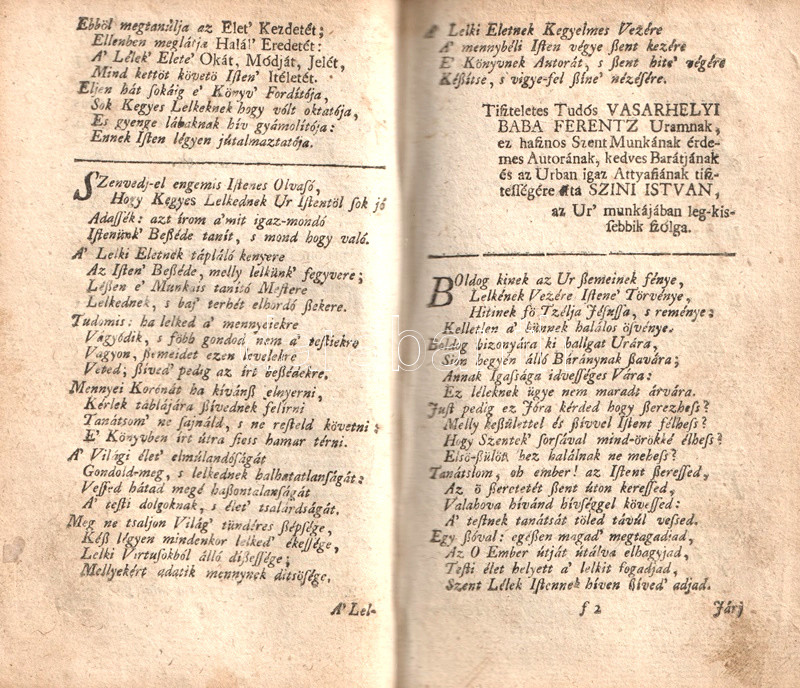 Ebböl megtanúlja az Elet' Kezdetét;
Ellenben meglátja Halál' Eredetét:
A' Lélek' Elete' Okát, Módját, Jelét,
Mind kettöt követö Iſten' Itéletét.
Eljen hát ſokáig e' Könyv' Fordítója,
Sok Kegyes Lelkeknek hogy vólt oktatója,
Es gyenge lábaknak hív gyámolítója:
Ennek Iſten légyen jútalmaztatója.
SZenvedj-el engemis Iſtenes Olvaſó,
Hogy Kegyes Lelkednek Ur Iſtentöl ſok jó
Adaſſék: azt írom a'mit igaz-mondó
Iſtenünk' Beßéde tanít, s mond hogy való.
A' Lelki Eletnek tápláló kenyere
Az Iſten' Beßéde, melly lelkünk' fegyvere;
Léßen e' Munkais tanitó Meſtere
Lelkednek, s baj' terhét elhordó ßekere.
Tudomis: ha lelked a' mennyeiekre
Vágyódik, s föbb gondod nem a' teſtiekre
Vagyon, ßemeidet ezen levelekre
Veted; ßíved' pedig az írt beßédekre.
Mennyei Koronát ha kívánß elnyerni,
Kérlek táblájára ßívednek felírni
Tanátsom' ne ſajnáld, s ne reſteld követni:
E' Könyvben írt útra ſieſs hamar térni.
A' Világi élet' elmúlandóságát
Gondold-meg, s lelkednek halhatatlanſágát:
Veſſed hátad megé haßontalanſágát
A' teſti dolgoknak, s élet' tsalárdságát.
Meg ne tsaljon Világ' tündéres ßépſége,
Kéß légyen mindenkor lelked' ékeſſége,
Lelki Virtusokból álló dißeſſége;
Mellyekért adatik mennynek ditsöſége.
A' Lel-
A' Lelki Eletnek Kegyelmes Vezére
A' mennybéli Iſten végye ßent kezére
E' Könyvnek Autorát, s ßent hite' végére
Kéßítse, s vigye-fel ßíne' nézéſére.
Tiſzteletes Tudós VASARHELYI
BABA FERENTZ Uramnak,
ez haſznos Szent Munkának érde-
mes Autorának, kedves Barátjának
és az Urban igaz Attyafiának tiſz-
teſſégére írta SZINI ISTVAN,
az Ur' munkájában leg-kis-
ſebbik ſzólga.
BOldog kinek az Ur ßemeinek fénye,
Lelkének Vezére Iſtene' Törvénye,
Hitinek fö Tzélja Jéſuſſa, s reménye;
Kelletlen a' bünnek halálos ösvénye.
Boldog bizonyára ki hallgat Urára,
Sion hegyén álló Báránynak ßavára;
Annak Igaſsága idveſséges Vára:
Ez léleknek ügye nem maradt árvára.
Juſt pedig ez Jóra kérded hogy ßerezheſs?
Melly keßülettel és ßívvel Iſtent félheſs?
Hogy Szentek' ſorſával mind-örökké élheſs?
Elsö-ßülött hez halálnak ne meheſs?
Tanátslom, oh ember! az Iſtent ßereſſed,
Az ö ßeretetét ßent úton kereſſed,
Valahova hívánd hívſéggel köveſſed:
A' teſtnek tanátsát töled távúl veſsed.
Egy ßóval: egéßen magad' megtagadjad,
Az O Ember útját útálva elhagyjad,
Teſti élet helyett a' lelkit fogadjad,
Szent Lélek Iſtennek híven ßíved' adjad.
f 2
Járj